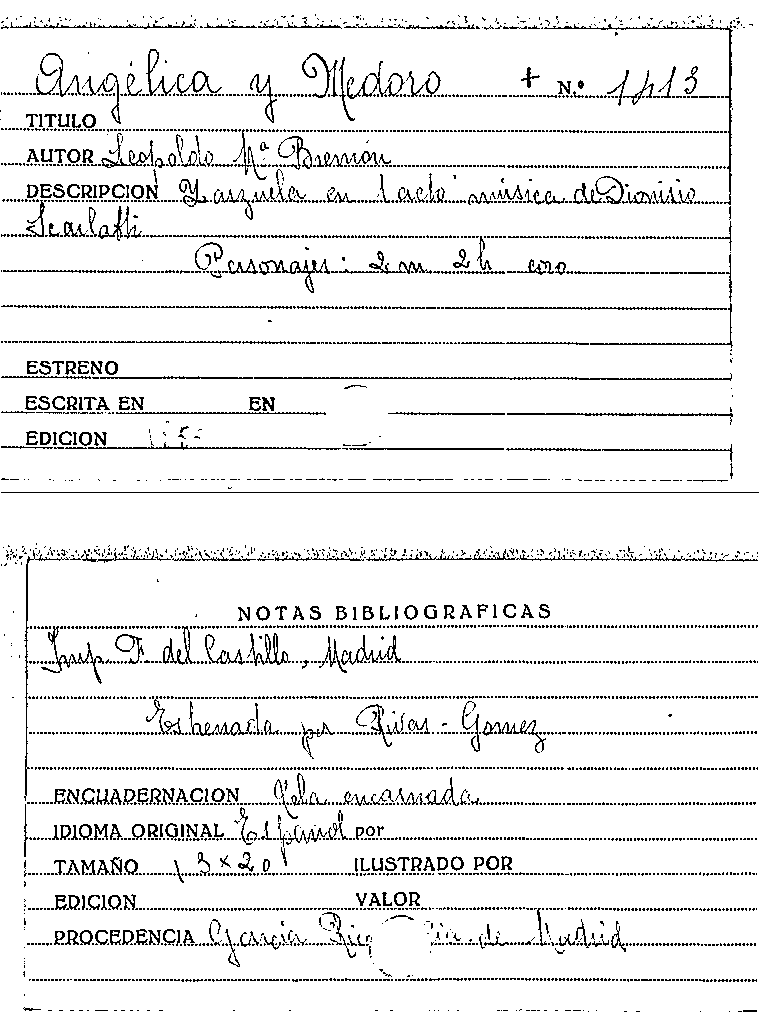 Angélica y Medoro + N.º 1413
TITULO
AUTOR Leopoldo Mª Bremón
DESCRIPCION Zarzuela en 1 acto música de Dionisio
Scarlatti
Personajes: 2 m 2 h coro
ESTRENO
ESCRITA EN EN
EDICION
NOTAS BIBLIOGRAFICAS
Imp. F. del Castillo, Madrid
Estrenada por Rivas - Gomez
ENCUADERNACION Tela encarnada
IDIOMA ORIGINAL Español por
TAMAÑO 13 x 20 ILUSTRADO POR
EDICION VALOR
PROCEDENCIA García de Madrid